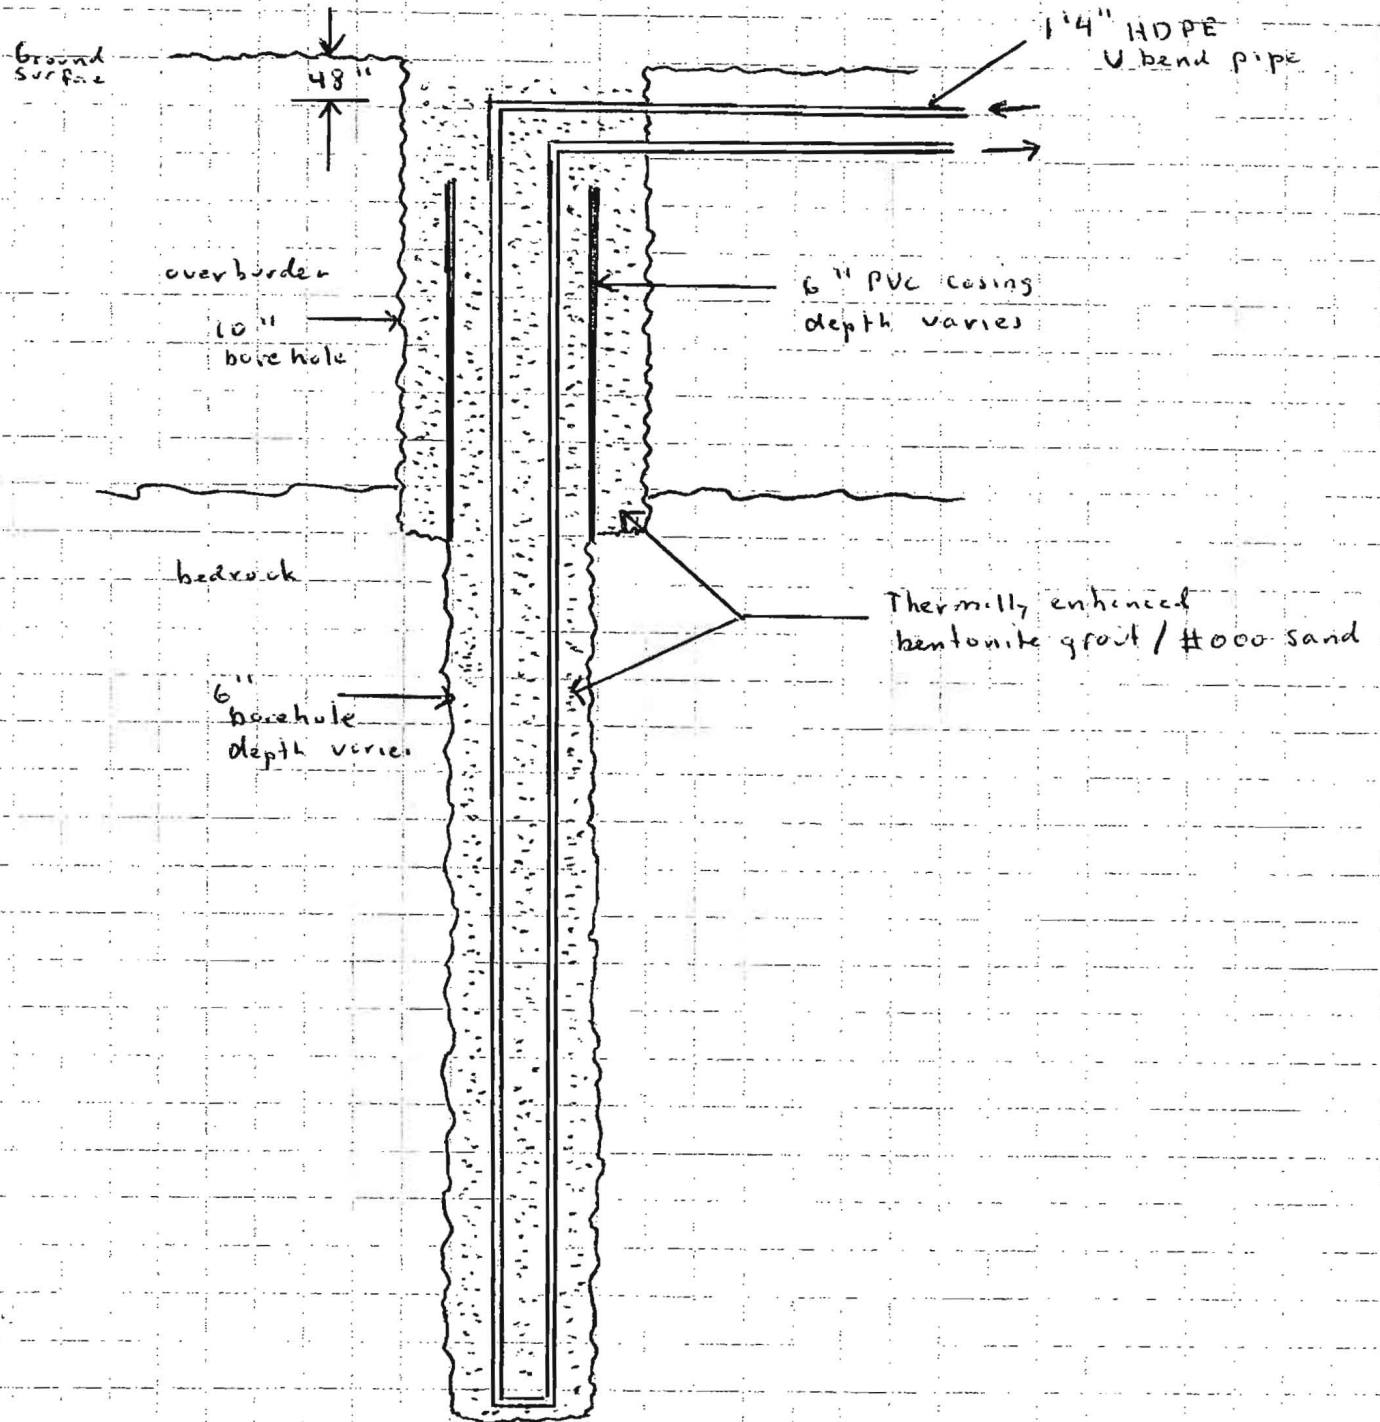 Ground
surface
48"
1'4" HDPE
U bend pipe
overburden
10"
borehole
6" PVC casing
depth varies
bedrock
Thermally enhanced
bentonite grout / #000 sand
6"
borehole
depth varies